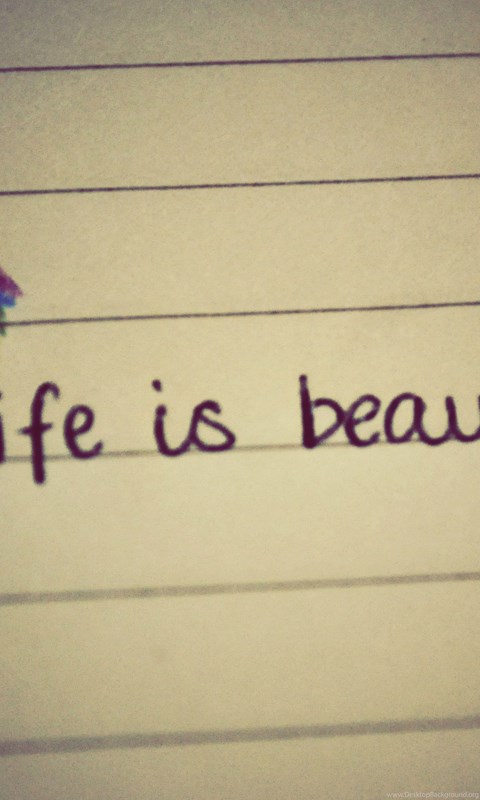 ife is beau
www.DesktopBackground.org